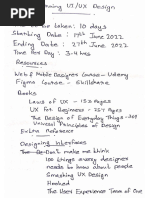 Learning UI/UX Design
Time to be taken: 10 days
Starting Date: 17th June 2022
Ending Date: 27th June 2022
Time Per Day: 3-4 hrs
Resources
Web & Mobile Designer Course - Udemy
Figma Course - Skillshare
Books
Laws of UX - 153 Pages
UX for Beginners - 257 Pages
The Design of Everyday Things - 369
Universal Principles of Design
Extra Reference
Designing Interfaces
Don't make me think
100 things every designer
needs to know about people
Smashing UX Design
Hooked
The User Experience Team of One